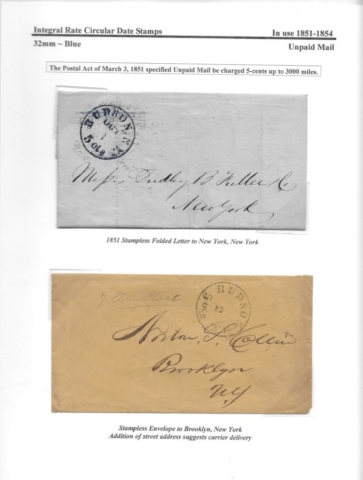 Integral Rate Circular Date Stamps In use 1851-1854
32mm ~ Blue Unpaid Mail
The Postal Act of March 3, 1851 specified Unpaid Mail be charged 5-cents up to 3000 miles.
HUDSON
OCT
1
5 cts NY
Messrs Dudley B Fuller & Co
New York
1851 Stampless Folded Letter to New York, New York
HUDSON
15
Brooklyn
NY
Stampless Envelope to Brooklyn, New York
Addition of street address suggests carrier delivery